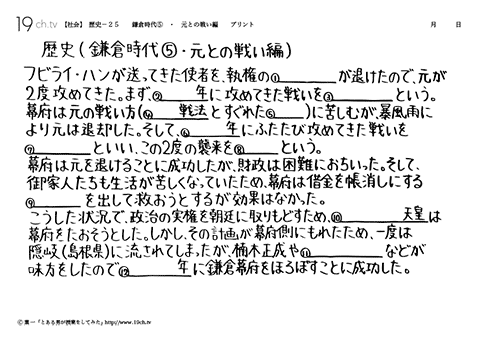 19ch.tv 【社会】 歴史－２５ 鎌倉時代⑤ ・ 元との戦い編 プリント 月 日
歴史（鎌倉時代⑤・元との戦い編）
フビライ・ハンが送ってきた使者を、執権の①＿＿＿＿が退けたので、元が
2度攻めてきた。まず、②＿＿年に攻めてきた戦いを③＿＿＿＿という。
幕府は元の戦い方（④＿＿戦法とすぐれた⑤＿＿）に苦しむが、暴風雨に
より元は退却した。そして、⑥＿＿年にふたたび攻めてきた戦いを
⑦＿＿＿＿といい、この2度の襲来を⑧＿＿＿＿という。
幕府は元を退けることに成功したが、財政は困難におちいった。そして、
御家人たちも生活が苦しくなっていたため、幕府は借金を帳消しにする
⑨＿＿＿＿を出して救おうとするが効果はなかった。
こうした状況で、政治の実権を朝廷に取りもどすため、⑩＿＿＿＿天皇は
幕府をたおそうとした。しかし、その計画が幕府側にもれたため、一度は
隠岐（島根県）に流されてしまったが、楠木正成や⑪＿＿＿＿などが
味方をしたので⑫＿＿＿＿年に鎌倉幕府をほろぼすことに成功した。
Ⓒ 葉一「とある男が授業をしてみた」http://www.19ch.tv